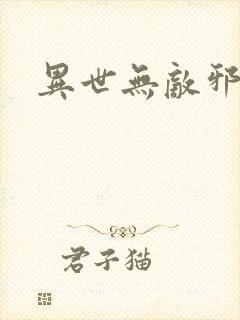 異世無敵邪
君子猫